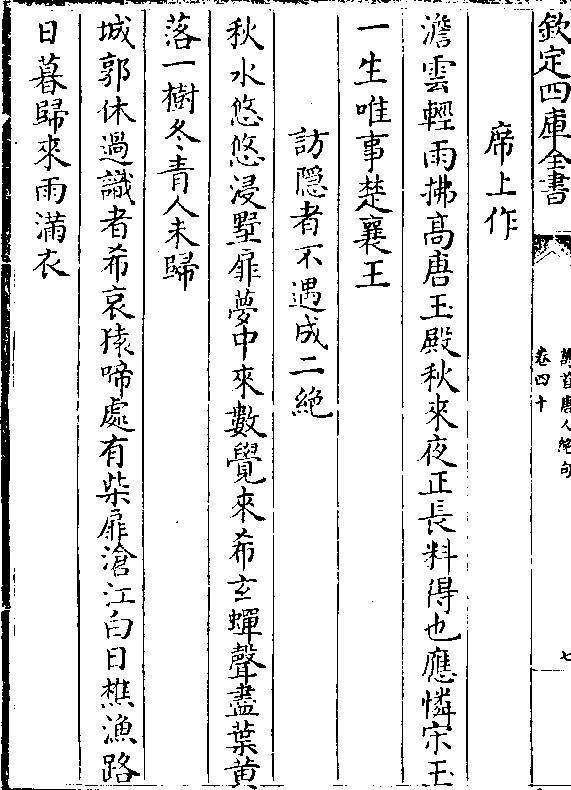 欽定四庫全書
萬首唐人絶句
卷四十
七
席上作
澹雲輕雨拂髙唐玉殿秋來夜正長料得也應憐宋玉
一生唯事楚襄王
訪隠者不遇成二絶
秋水悠悠浸墅扉夢中來數覺來希玄蟬聲盡葉黄
落一樹冬青人未歸
城郭休過識者希哀猿啼處有柴扉滄江白日樵漁路
日暮歸來雨滿衣